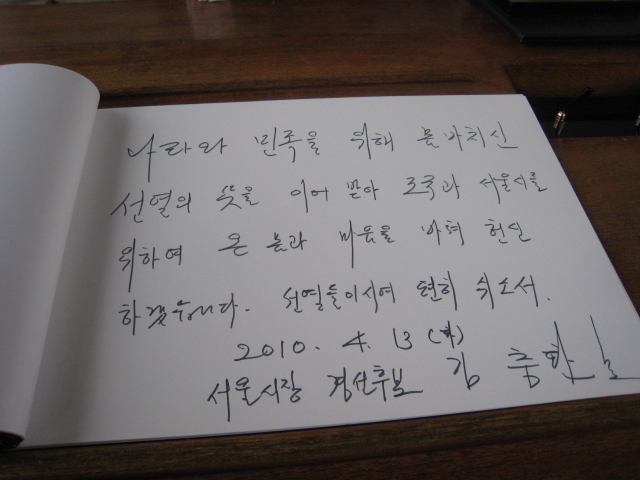 나라와 민족을 위해 몸바치신
선열의 뜻을 이어 받아 조국과 서울시를
위하여 온 몸과 마음을 바쳐 헌신
하겠습니다. 선열들이시여 편히 쉬소서.
2010. 4. 13 (화)
서울시장 경선후보 김 충환